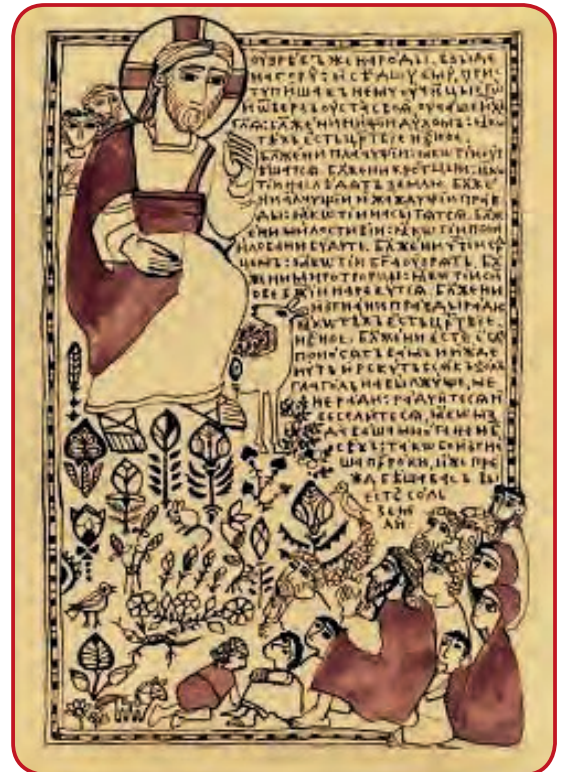 ОУЗРѢВЪ ЖЕ НАРОДЫ, ВЗЫДЕ
НА ГОРУ: И СѢДШУ ЕМУ, ПРИС
ТУПИША КЪ НЕМУ ОУЧНЦЫ ЕГѠ
И ѾВЕРЗЪ ОУСТА СВОѦ, ОУЧАШЕ ИХЪ
ГЛѦ: БЛЖЕНИ НИЩИИ ДУХОМЪ: ꙖКѠ
ТѢХЪ ЕСТЬ ЦРТВІЕ НБНОЕ.
БЛЖЕНИ ПЛАЧУЩІИ: ꙖКѠ ТІИ ОУТѢ
ШАТСѦ. БЛЖЕНИ КРОТЦЫИ: ꙖКѠ
ТІИ НАСЛѢДѦТЪ ЗЕМЛЮ. БЛЖЕ
НИ АЛЧУЩІИ И ЖАЖДУЩІИ ПРАВ
ДЫ: ꙖКѠ ТІИ НАСЫТѦТСѦ. БЛЖ
ЕНИ МИЛОСТИВІИ: ꙖКѠ ТІИ ПОМИ
ЛОВАНИ БУДУТЪ. БЛЖЕНИ ЧТІИ СЕР
ЦЕМЪ: ꙖКѠ ТІИ БГА ОУЗРѦТЪ. БЛ
ЖЕНИ МИРОТВОРЦЫ: ꙖКѠ ТІИ СЫН
ОВЕ БЖІИ НАРЕКУТСѦ. БЛЖЕНИ
ИЗГНАНИ ПРАВДЫ РАДИ
ꙖКѠ ТѢХЪ ЕСТЬ ЦРТВІЕ.
НБНОЕ. БЛЖЕНИ ЕСТЕ ЕГДА
ПОНОСѦТЪ ВАМЪ И ИЖДЕ
НУТЪ И РЕКУТЪ ВСѦКЪ ЗОЛЪ
ГЛАГОЛЪ НА ВЫ ЛЖУЩЕ, МЕ
НЕ РАДИ: РАДУЙТЕСѦ И
ВЕСЕЛИТЕСѦ, ꙖКѠ МЗ
ДА ВАША МНОГА НА НБ
СѢХЪ: ТАКѠ БО ИЗГНА
ША ПРРОКИ, ИЖЕ ПРЕ
ЖДЕ БѢША ВАСЪ. ВЫ
ЕСТЕ СОЛЬ
ЗЕМ
ЛИ